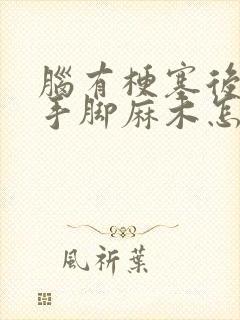 腦有梗塞後
手腳麻木怎
風祈葉